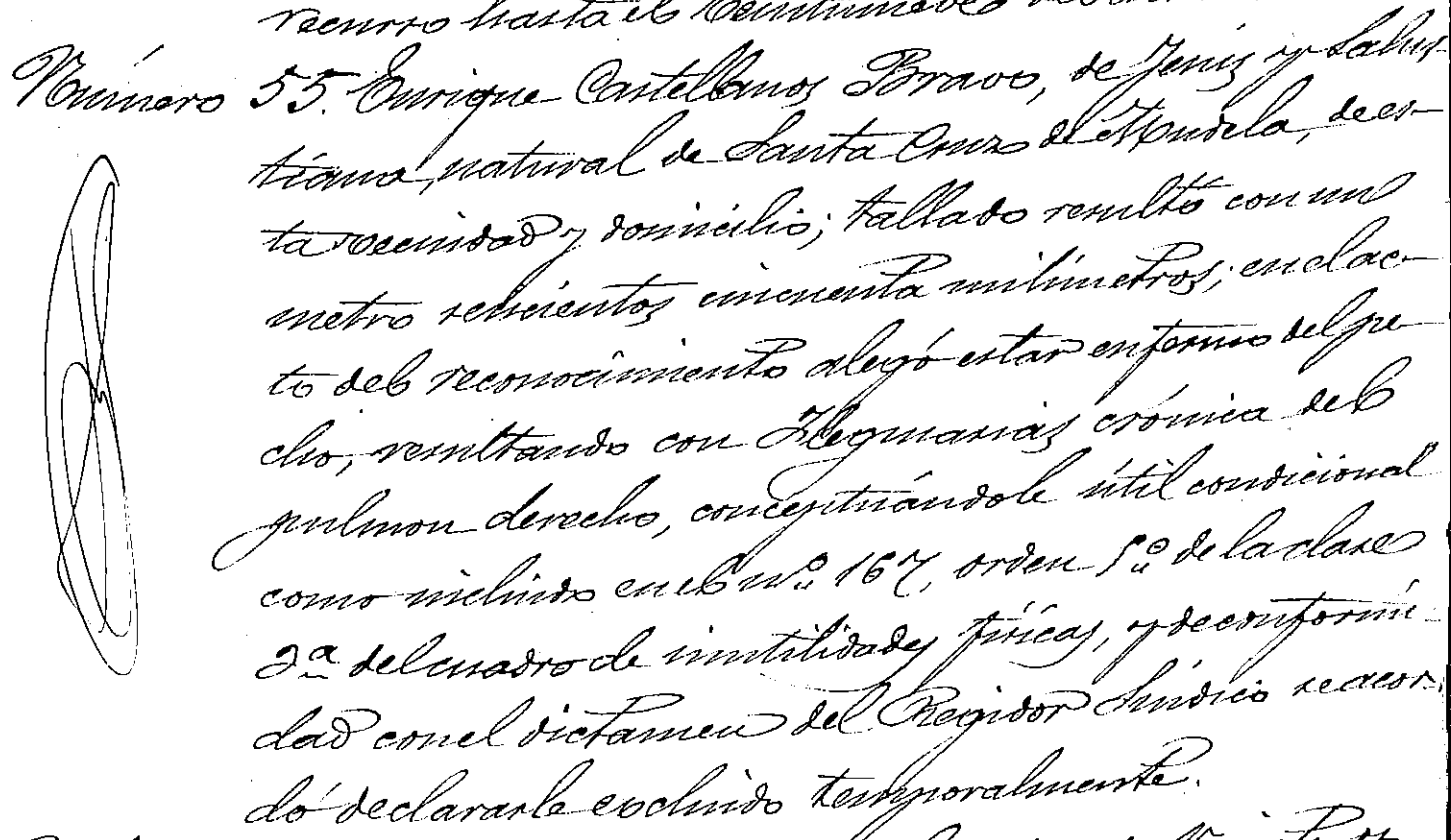 recurso hasta el
Número 55. Enrique Castellanos Bravo, de Jesús y Salus-
tiana, natural de Santa Cruz de Mudela, de es-
ta vecindad y domicilio; tallado resultó con un
metro seiscientos cincuenta milímetros; en el ac-
to del reconocimiento alegó estar enfermo del pe-
cho, resultando con Flegmasias crónica del
pulmon derecho, conceptuándole útil condicional
como incluido en el nº 167, orden 5º de la clase
2ª del cuadro de inutilidades físicas, y de conformi-
dad con el dictamen del Regidor Síndico se acor-
dó declararle excluido temporalmente.